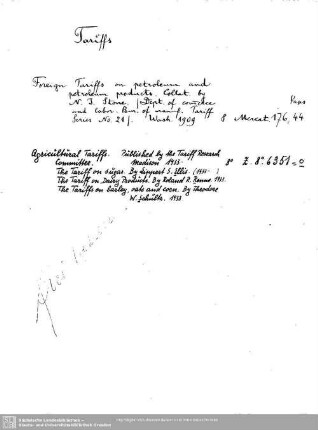 Tariffs
Foreign Tariffs on petroleum and
petroleum products. Collat. by
N. I. Stone. /Dept. of comerce
and labor. Bur. of manuf. Tariff
Series No. 21/. Wash 1909 8 Mercat. 176, 44
Agricultural Tariffs. Published by the Tariff Research
Committee. Madison 1933- 8° Z. 8°. 6351
The Tariff on sugar. By Lippert S. Ellis. (1933- )
The Tariff on Dairy Products. By Roland R. Renne. 1933.
The Tariffs on barley, oats and corn. By Theodore
W. Schultz. 1933